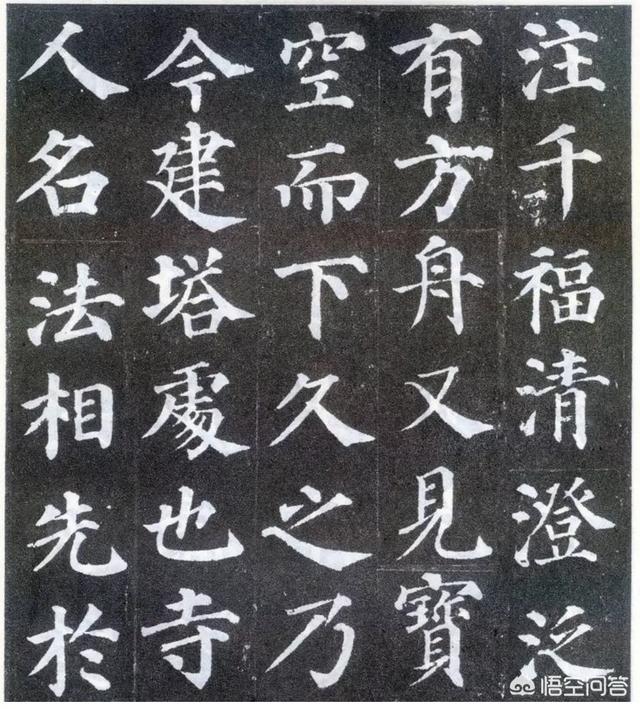 注千福清澄泛
有方舟又見寶
空而下久之乃
今建塔處也寺
人名法相先於
悟空问答